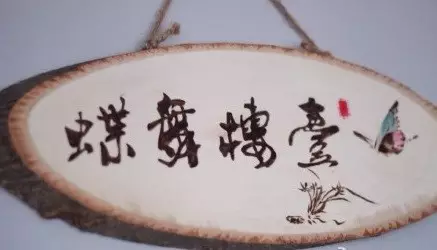 蝶舞樓臺